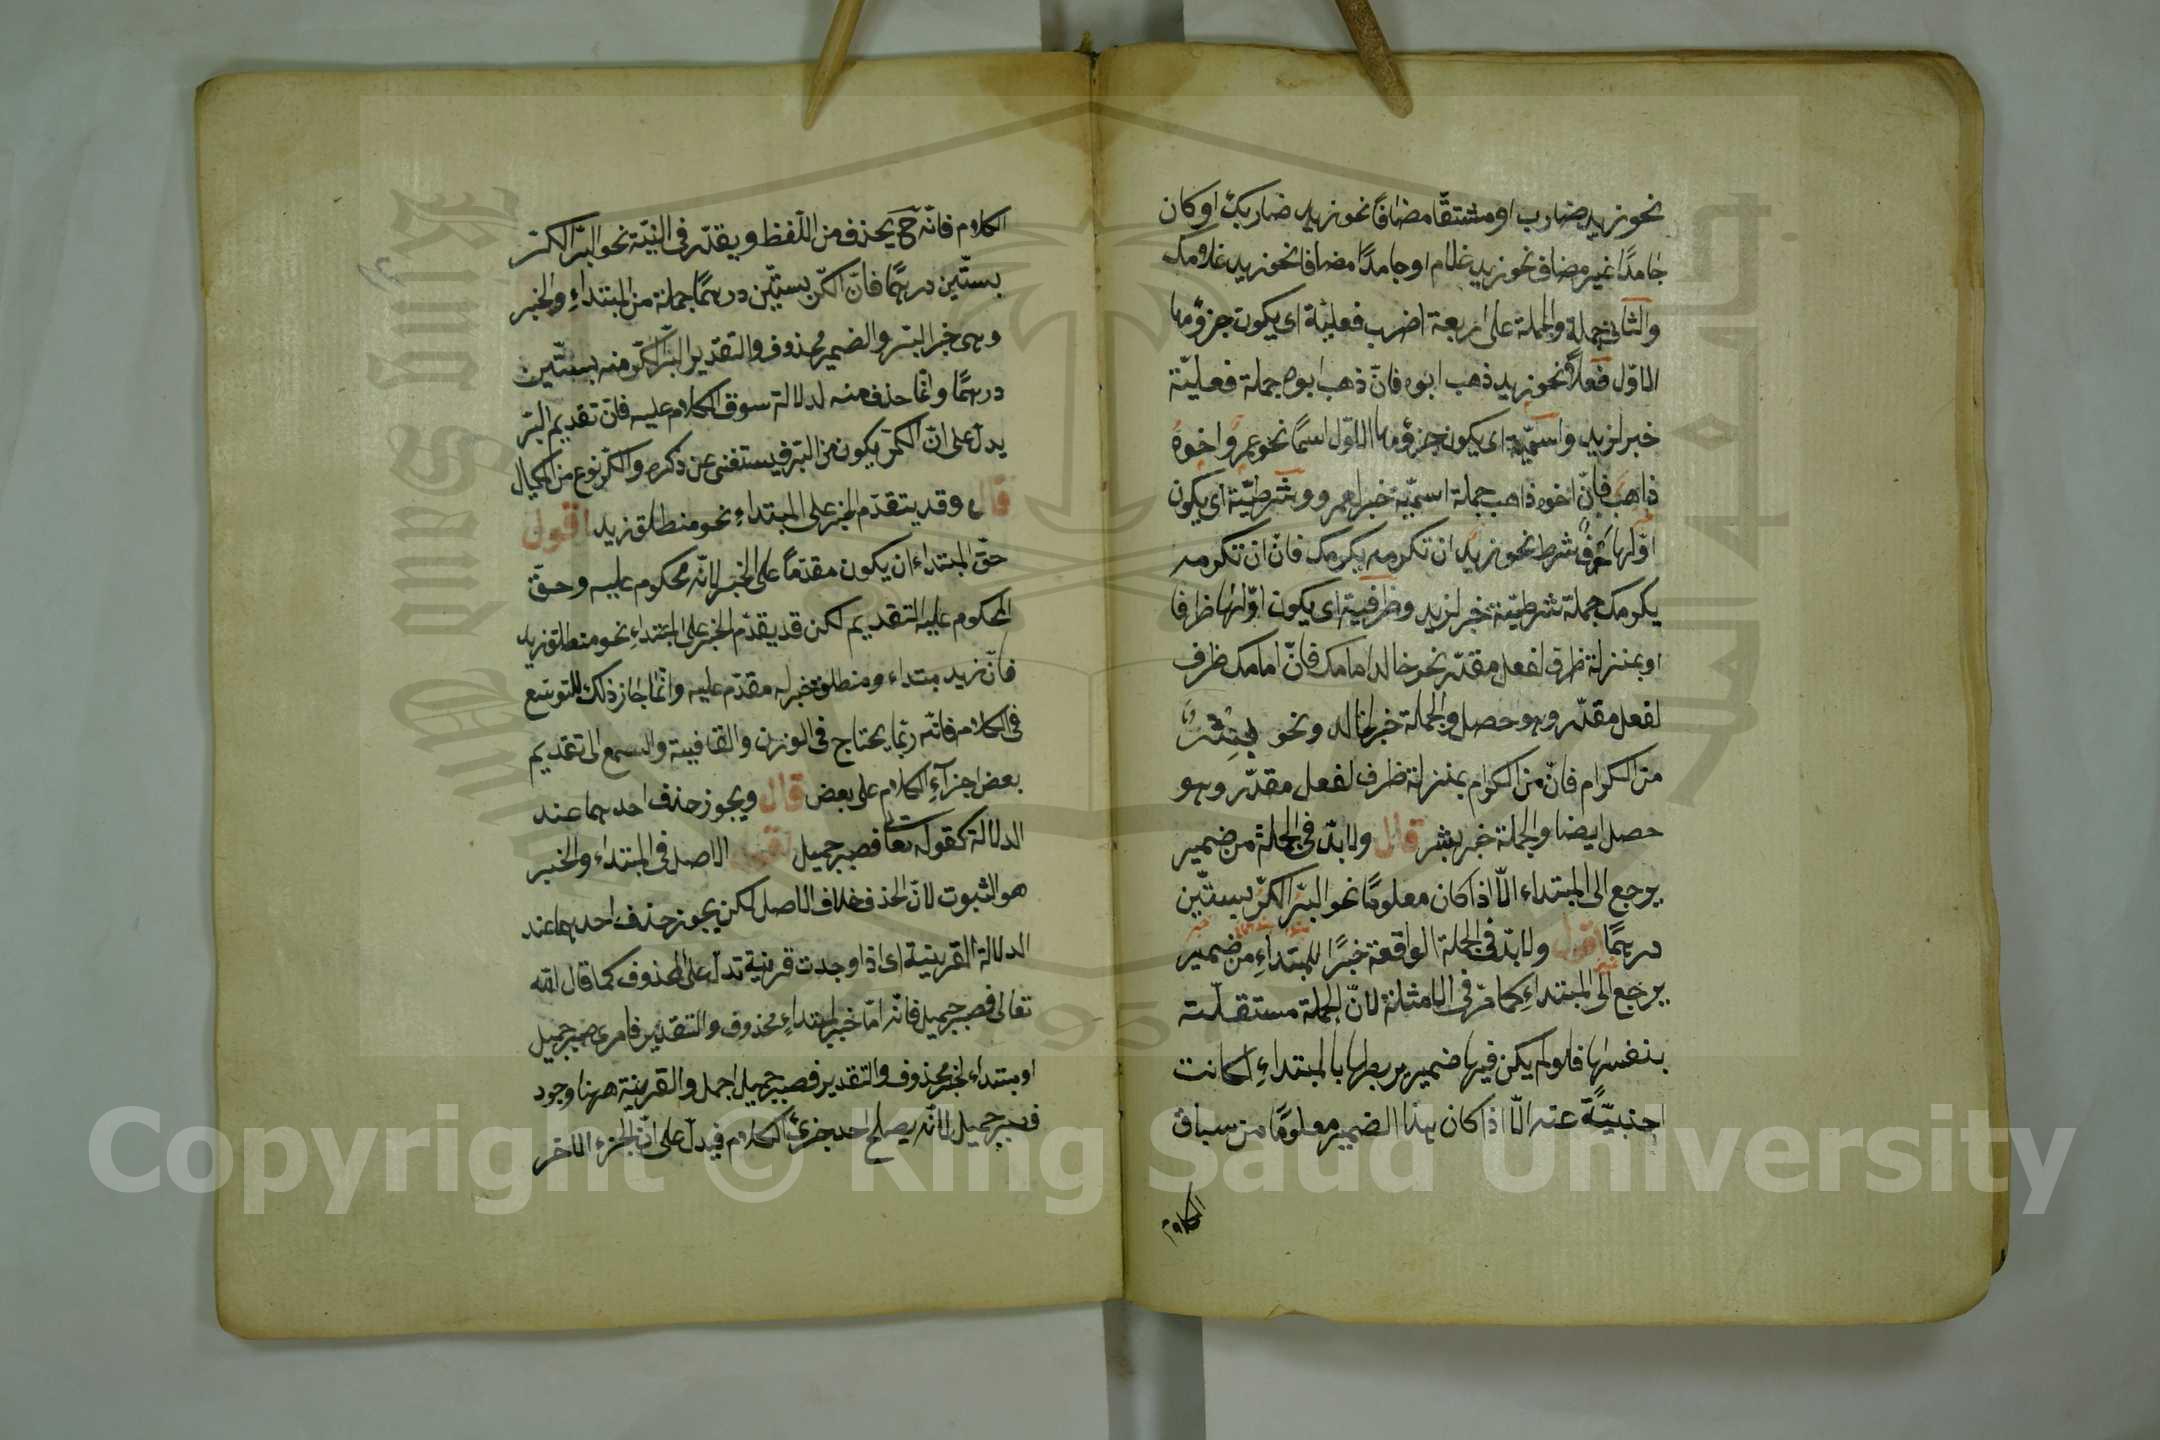 نحو زيد ضارب او مشتقّا مضافًا نحو زيد ضاربك او كان
جامدًا غير مضاف نحو زيد غلام او جامدًا مضافا نحو زيد غلامك
والثانى جملة والجملة على اربعة اضرب فعليّة اى يكون جزؤها
الاوّل فعلاً نحو زيد ذهب ابوه فانّ ذهب ابوه جملة فعليّة
خبر لزيد واسميّة اى يكون جزؤها الاوّل اسمًا نحو عمرو اخوه
ذاهب فانّ اخوه ذاهب جملة اسميّة خبر لعمرو وشرطيّة اى يكون
اوّلها حرف شرط نحو زيد ان تكرمه يكرمك فانّ ان تكرمه
يكرمك جملة شرطيّة خبر لزيد وظرفية اى يكون اوّلها ظرفا
او بمنزلة ظرف لفعل مقدّر نحو خالد امامك فانّ امامك ظرف
لفعل مقدّر وهو حصل والجملة خبر لخالد ونحو بِشْرٌ
من الكرام فانّ من الكرام بمنزلة ظرف لفعل مقدّر وهو
حصل ايضا والجملة خبر بشر قال ولابدّ فى الجملة من ضمير
يرجع الى المبتداء الّا اذا كان معلومًا نحو البُرّ الكرّ بستّين
درهمًا اقول ولابدّ فى الجملة الواقعة خبرًا للمبتداءِ من ضمير
يرجع الى المبتداءِ كما مرّ فى الامثلة لانّ الجملة مستقلّة
بنفسها فلو لم يكن فيها ضمير يربطها بالمبتداءِ لكانت
اجنبيّةً عنه الّا اذا كان هذا الضمير معلومًا من سياق
الكلام
الكلام فانّه ح يحذف من اللّفظ ويقدّر فى النيّة نحو البرّ الكرّ
بستّين درهمًا فانّ الكرّ بستّين درهمًا جملة من المبتداءِ والخبر
وهى خبر البرّ والضمير محذوف والتقدير البرّ الكرّ منه بستّين
درهمًا وانّما حذف منه لدلالة سوق الكلام عليه فانّ تقديم البرّ
يدلّ على انّ الكرّ يكون من البرّ فيستغنى عن ذكره والكرّ نوع من المكيال
قال وقد يتقدّم الخبر على المبتداءِ نحو منطلق زيد اقول
حقّ المبتداء ان يكون مقدّمًا على الخبر لانّه محكوم عليه وحقّ
المحكوم عليه التقديم لكن قد يقدّم الخبر على المبتداءِ نحو منطلق زيد
فانّ زيد مبتداء ومنطلق خبر له مقدّم عليه وانّما جاز ذلك للتوسّع
فى الكلام فانّه ربّما يحتاج فى الوزن والقافية والسجع الى تقديم
بعض اجزآءِ الكلام على بعض قال ويجوز حذف احدهما عند
الدلالة كقوله تعالى فصبر جميل اقول الاصل فى المبتداء والخبر
هو الثبوت لانّ الحذف خلاف الاصل لكن يجوز حذف احدهما عند
الدلالة القرينية اى اذا وجدت قرينية تدلّ على المحذوف كما قال اللّه
تعالى فصبر جميل فانّه امّا خبر لمبتداءٍ محذوف والتقدير فامرى صبر جميل
او مبتداء لخبر محذوف والتقدير فصبر جميل اجمل والقرينية ههنا وجود
فصبر جميل لانّه يصلح احد جزئ الكلام فيدلّ على انّ الجزء الاخر
Copyright © King Saud University